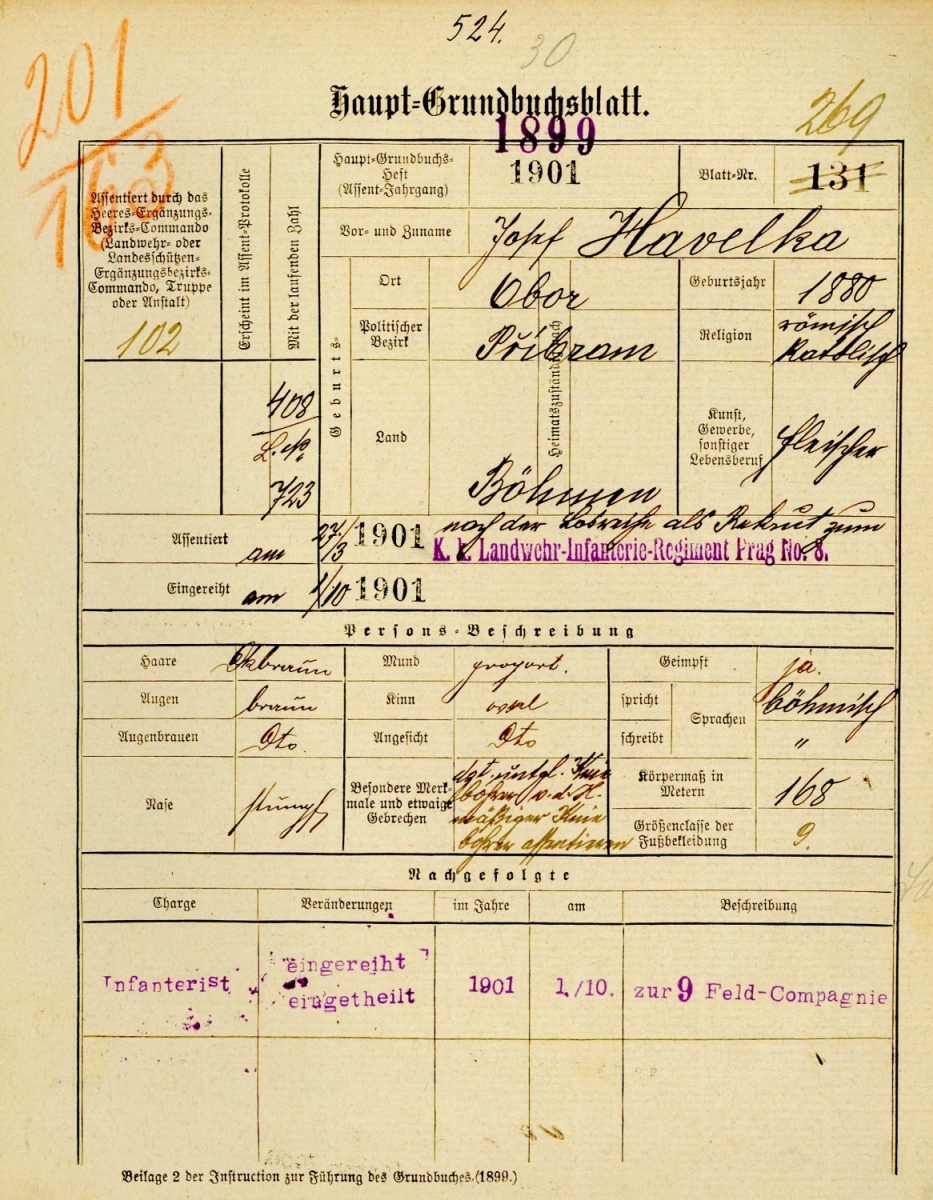 524.
30
201
163
Haupt-Grundbuchsblatt.
1899
269
Assentiert durch das
Heeres-Ergänzungs-
Bezirks-Commando
(Landwehr- oder
Landesschützen-
Ergänzungsbezirks-
Commando, Truppe
oder Anstalt)
102
Erscheint im Assent-Protokolle
Mit der laufenden Zahl
408
L. No.
723
Haupt-Grundbuchs-
Heft
(Assent-Jahrgang)
1901
Blatt-Nr.
131
Vor- und Zuname
Josef Havelka
Geburts-
Ort
Obor
Politischer
Bezirk
Příbram
Land
Böhmen
Heimatszuständig nach
Geburtsjahr
1880
Religion
römisch
katolisch
Kunst,
Gewerbe,
sonstiger
Lebensberuf
Fleischer
Assentiert am 27/3 1901 nach der Losreihe als Rekrut zum
K. k. Landwehr-Infanterie-Regiment Prag No. 8.
Eingereiht am 1/10 1901
Persons-Beschreibung
Haare Dkbraun
Augen braun
Augenbrauen Dto.
Nase stumpf
Mund proport.
Kinn oval
Angesicht Dto
Besondere Merk-
male und etwaige
Gebrechen
mäßiger Knie
bohrer assentieren
Geimpft ja.
spricht
schreibt
Sprachen
böhmisch
"
Körpermaß in
Metern
168
Größenclasse der
Fußbekleidung
9.
Nachgefolgte
Charge Veränderungen im Jahre am Beschreibung
Infanterist eingereiht
eingetheilt 1901 1./10. zur 9 Feld-Compagnie
Beilage 2 der Instruction zur Führung des Grundbuches. (1899.)